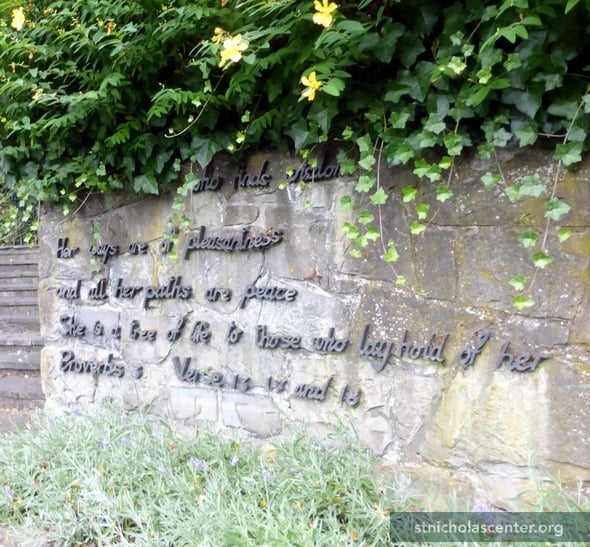 who finds wisdom
Her ways are of pleasantness
and all her paths are peace
She is a tree of life to those who lay hold of her
Proverbs 3 Verse 13 17 and 18
stnicholascenter.org